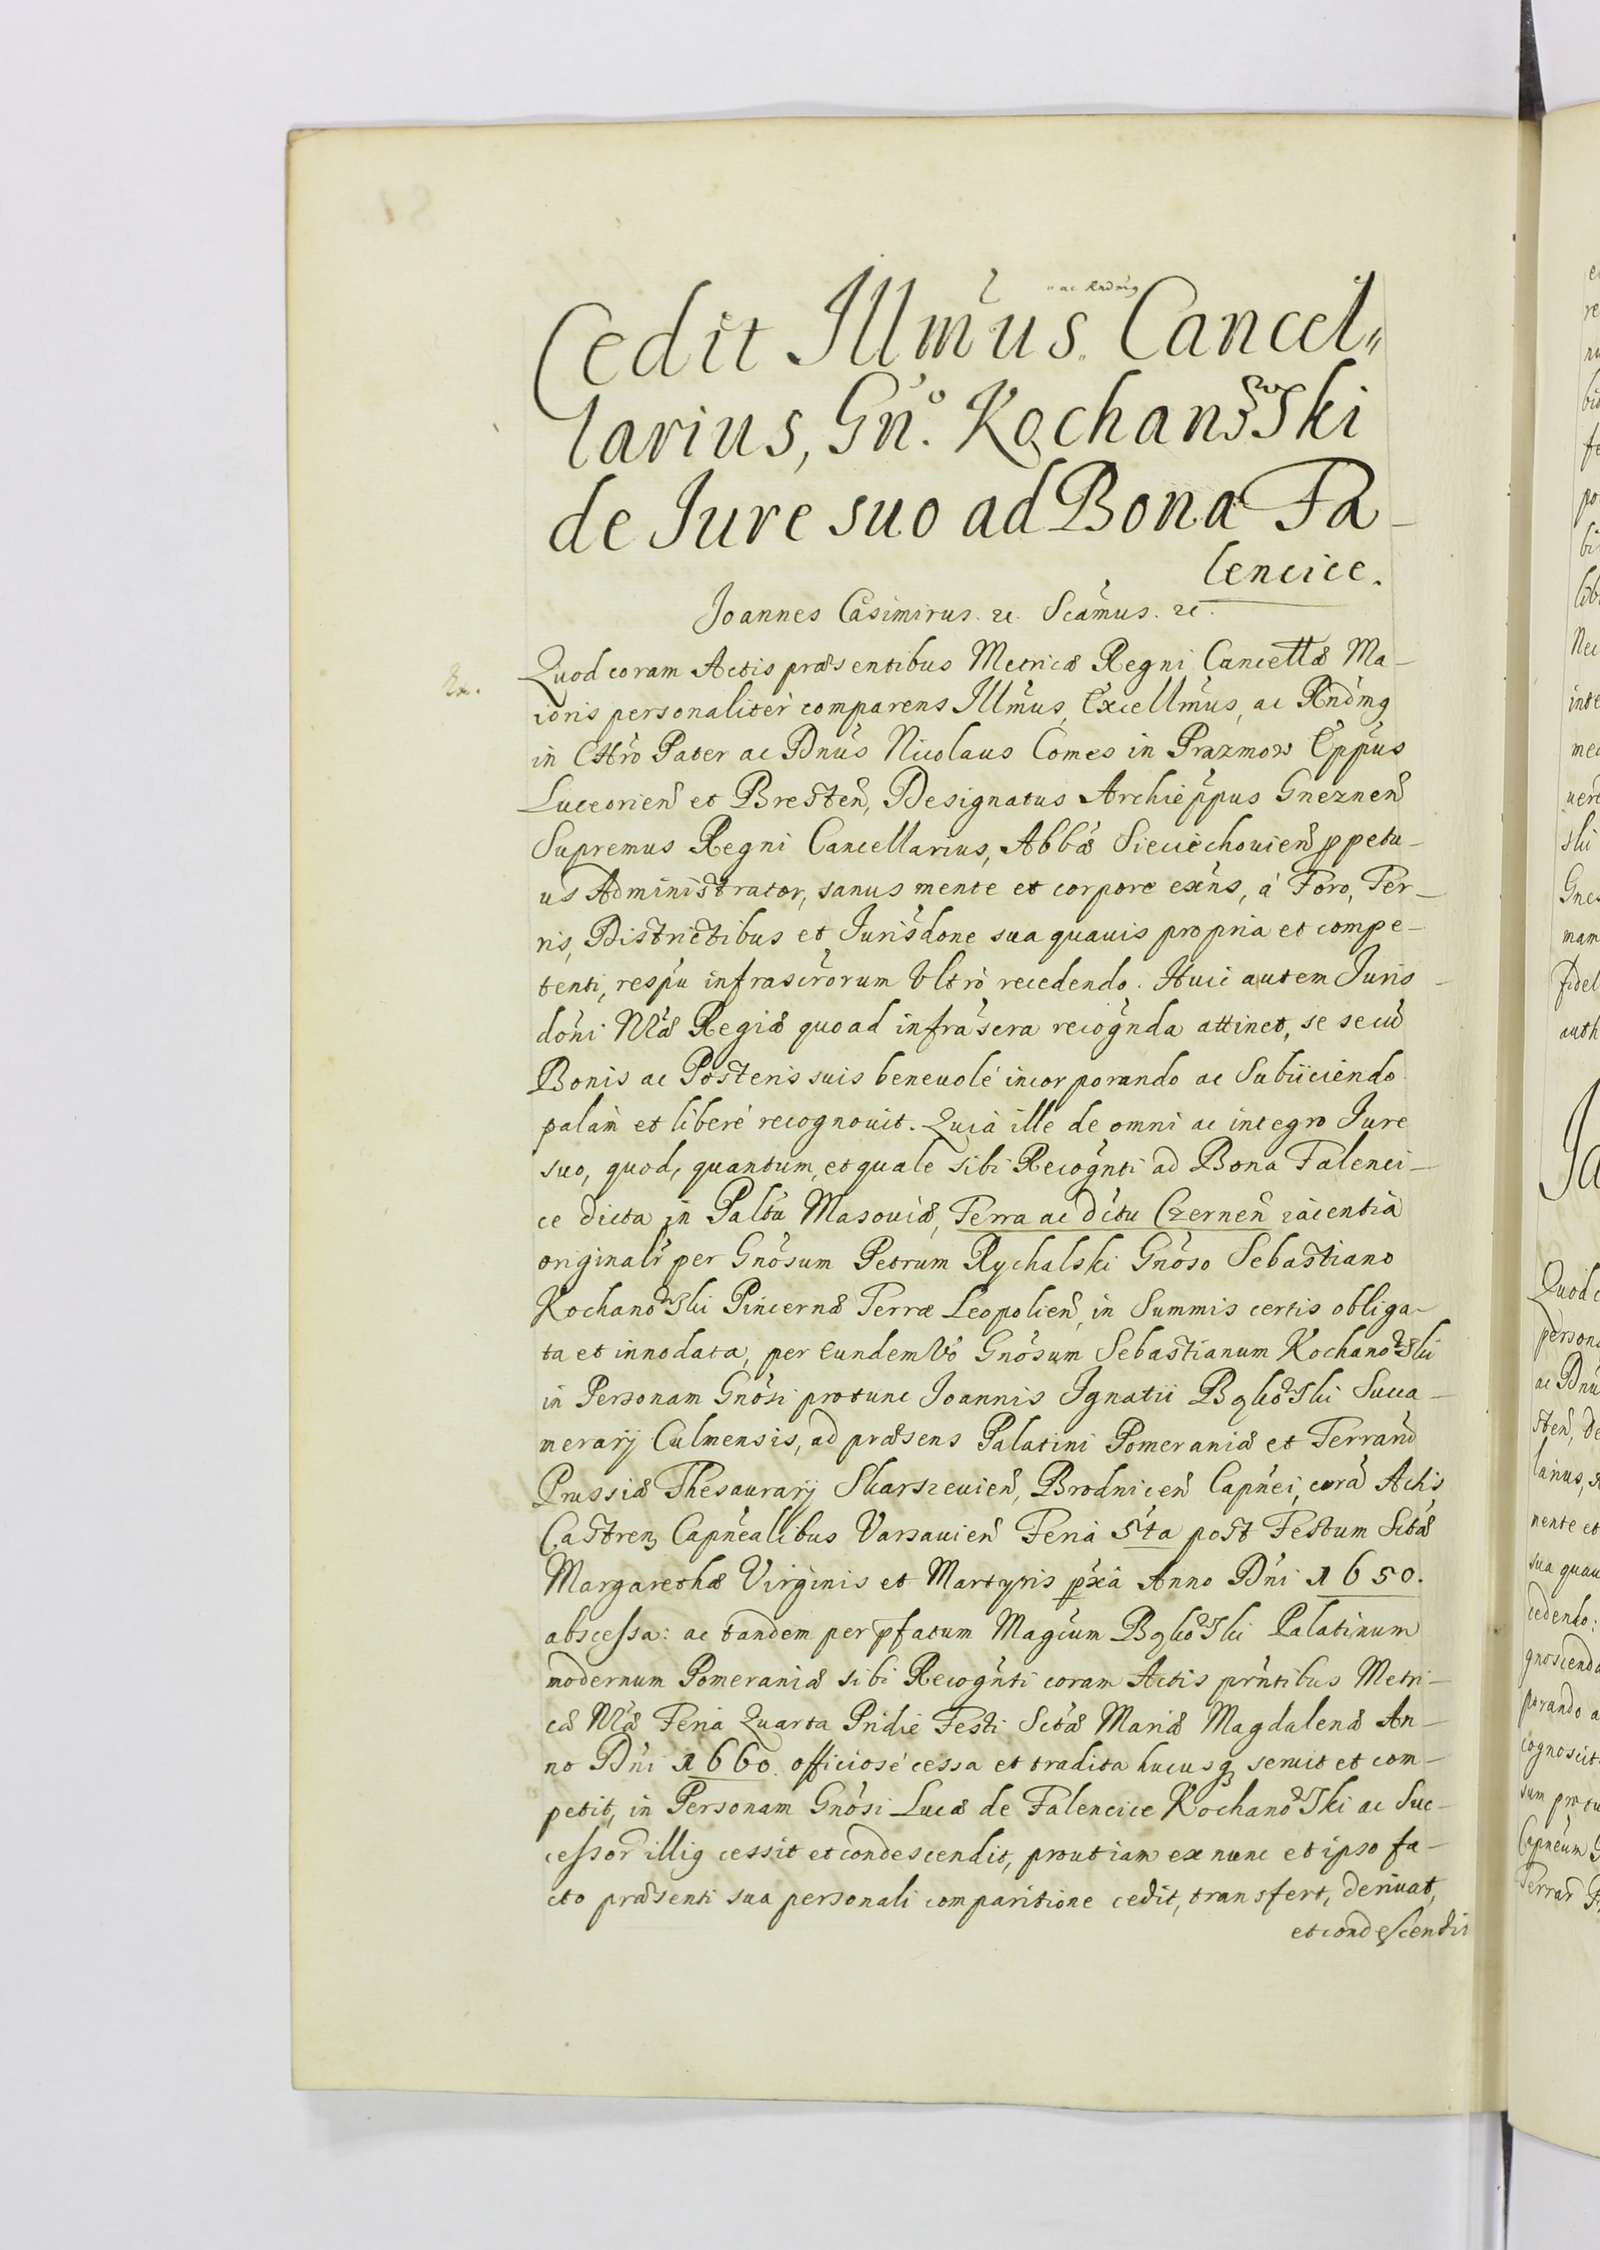 ac Rndmus
Cedit Illmus Cancel„
larius, Gn.o Kochanowski
de Jure suo ad Bona Fa-
lencice.
Joannes Casimirus. zc. Scamus. zc.
Quod coram Actis præsentibus Metricæ Regni Cancellæ Ma-
ioris personaliter comparens Illmus, Excellmus, ac Rndmus
in Chro Pater ac Dnus Nicolaus Comes in Prazmow Eppus
Luceorien et Bresten, Designatus Archieppus Gneznen
Supremus Regni Cancellarius, Abbæ Sieciechouien ppetu-
us Administrator, sanus mente et corpore exns, à Foro, Ter-
ris, Districtibus et Jurisdone sua quauis propria et compe-
tenti, respu infrascrorum Vltrò recedendo. Huic autem Juris-
doni Næ Regiæ quoad infrascra recognda attinet, se secu
Bonis ac Posteris suis beneuolé incorporando ac Subiiciendo
palàm et liberé recognouit. Quià ille de omni ac integro Jure
suo, quod, quantum, et quale sibi Recognti ad Bona Falenci-
ce dicta in Paltu Masouiæ, Terra ac dctu Czernen iacentià
originalr per Gnosum Petrum Rychalski Gnoso Sebastiano
Kochanowski Pincernæ Terræ Leopolien, in Summis certis obliga-
ta et innodata, per Eundem Vo Gnosum Sebastianum Kochanowski
in Personam Gnosi protunc Joannis Ignatii Bąkowski Succa-
merarij Culmensis, ad præsens Palatini Pomeraniæ et Terraru
Prussiæ Thesaurarij Skarszeuien, Brodnicen Capnei, cora Actis
Castren Capnealibus Varsauien Feria 5ta post Festum Sctæ
Margarethæ Virginis et Martyris pxia Anno Dni 1650.
abscessa: ac tandem per pfatum Magcum Bąkowski Palatinum
modernum Pomeraniæ sibi Recognti coram Actis prntibus Metri-
cæ Næ Feria Quarta Pridie Festi Sctæ Mariæ Magdalenæ An-
no Dni 1660. officiosé cessa et tradita hucusq seruit et com-
petit, in Personam Gnosi Lucæ de Falencice Kochanowski ac Suc-
cessor illius cessit et condescendit, prout iam ex nunc et ipso fa-
cto præsenti sua personali comparitione cedit, transfert, deriuat,
et condescendit